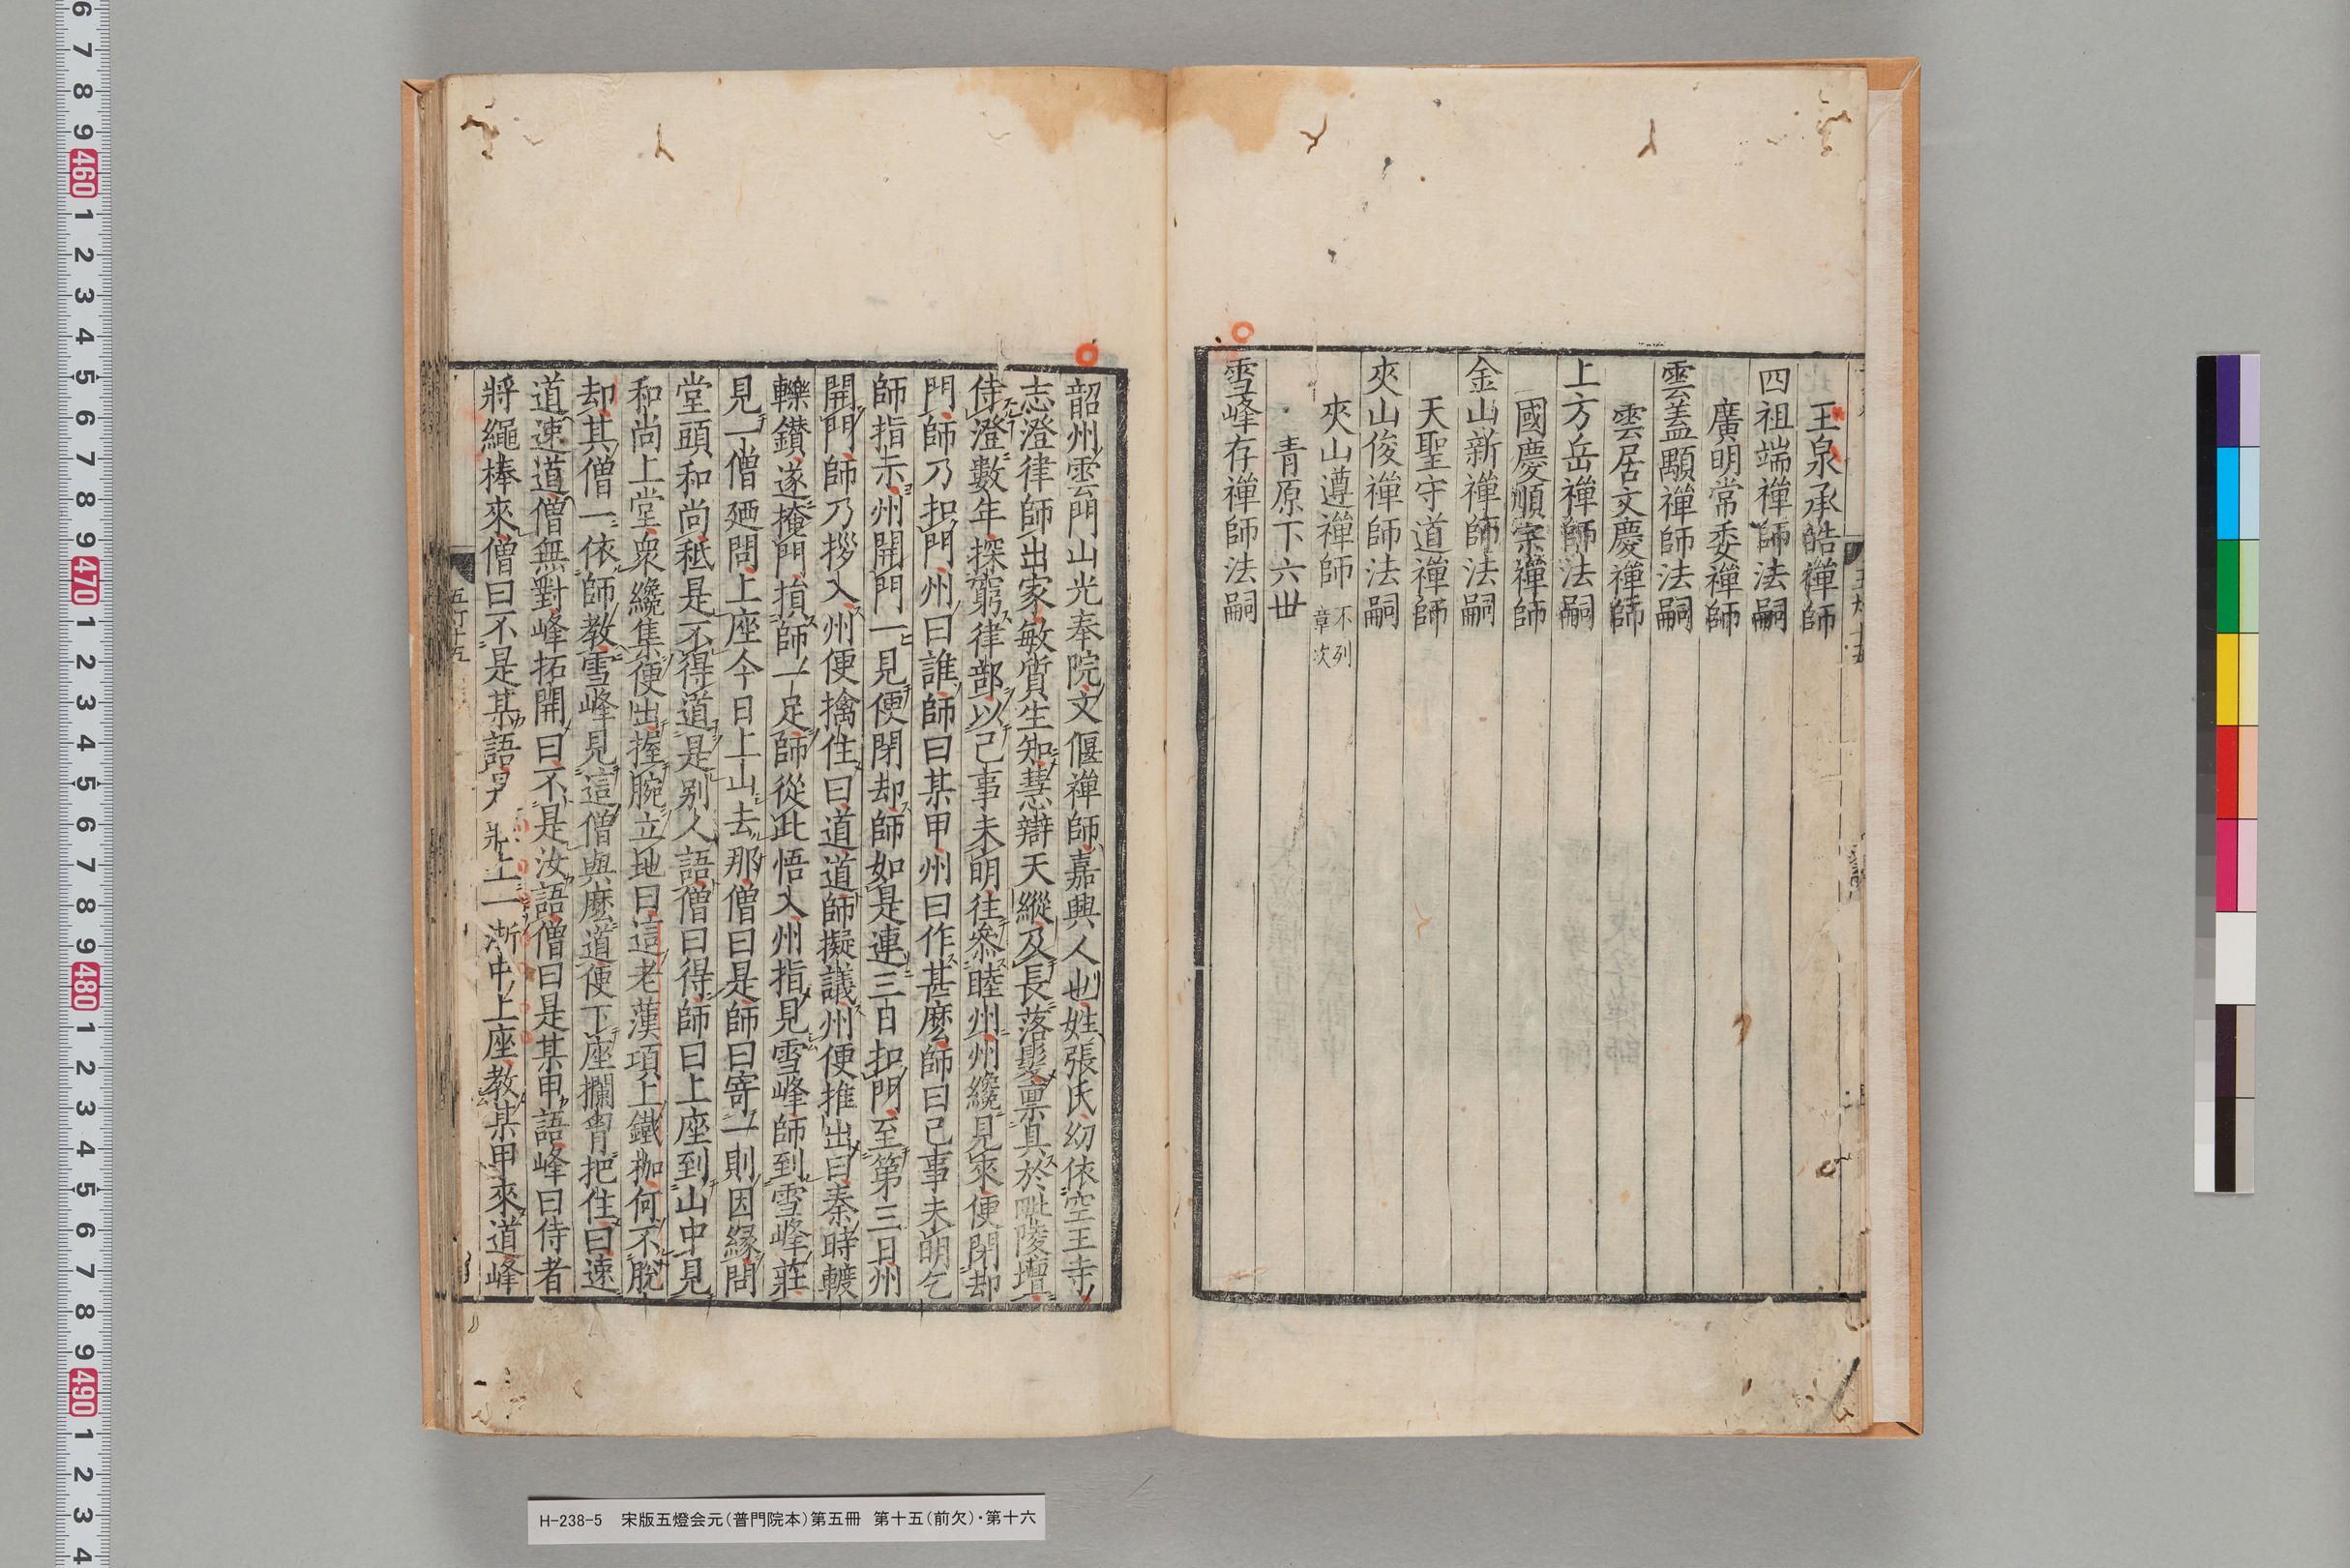 玉泉承皓禪師
四祖端禪師法嗣
廣明常委禪師
雲蓋顒禪師法嗣
雲居文慶禪師
上方岳禪師法嗣
國慶順宗禪師
金山新禪師法嗣
天聖守道禪師
夾山俊禪師法嗣
夾山遵禪師 不列章次
青原下六世
雪峰存禪師法嗣
韶州雲門山光奉院文偃禪師嘉興人也姓張氏幼依空王寺
志澄律師出家敏質生知慧辯天縱及長落髮稟具於毗陵壇
侍澄數年探窮律部以己事未明往參睦州州纔見來便閉却
門師乃扣門州曰誰師曰某甲州曰作甚麼師曰己事未明乞
師指示州開門一見便閉却師如是連三日扣門至第三日州
開門師乃拶入州便擒住曰道道師擬議州便推出曰秦時𨍏
轢鑽遂掩門損師一足師從此悟入州指見雪峰師到雪峰莊
見一僧廼問上座今日上山去那僧曰是師曰寄一則因緣問
堂頭和尚秪是不得道是別人語僧曰得師曰上座到山中見
和尚上堂衆纔集便出握腕立地曰這老漢項上鐵枷何不脫
却其僧一依師教雪峰見這僧與麼道便下座攔胷把住曰速
道速道僧無對峰拓開曰不是汝語僧曰是某甲語峰曰侍者
將繩棒來僧曰不是某語 上一浙中上座教某甲來道峰
五灯十五
H-238-5 宋版五燈会元(普門院本)第五冊 第十五(前欠)・第十六